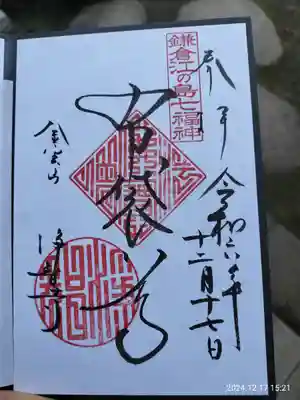 鎌倉江の島七福神
奉拝 令和六年
十二月十七日
布袋尊
金宝山
浄智寺
2024-12-17 15:21